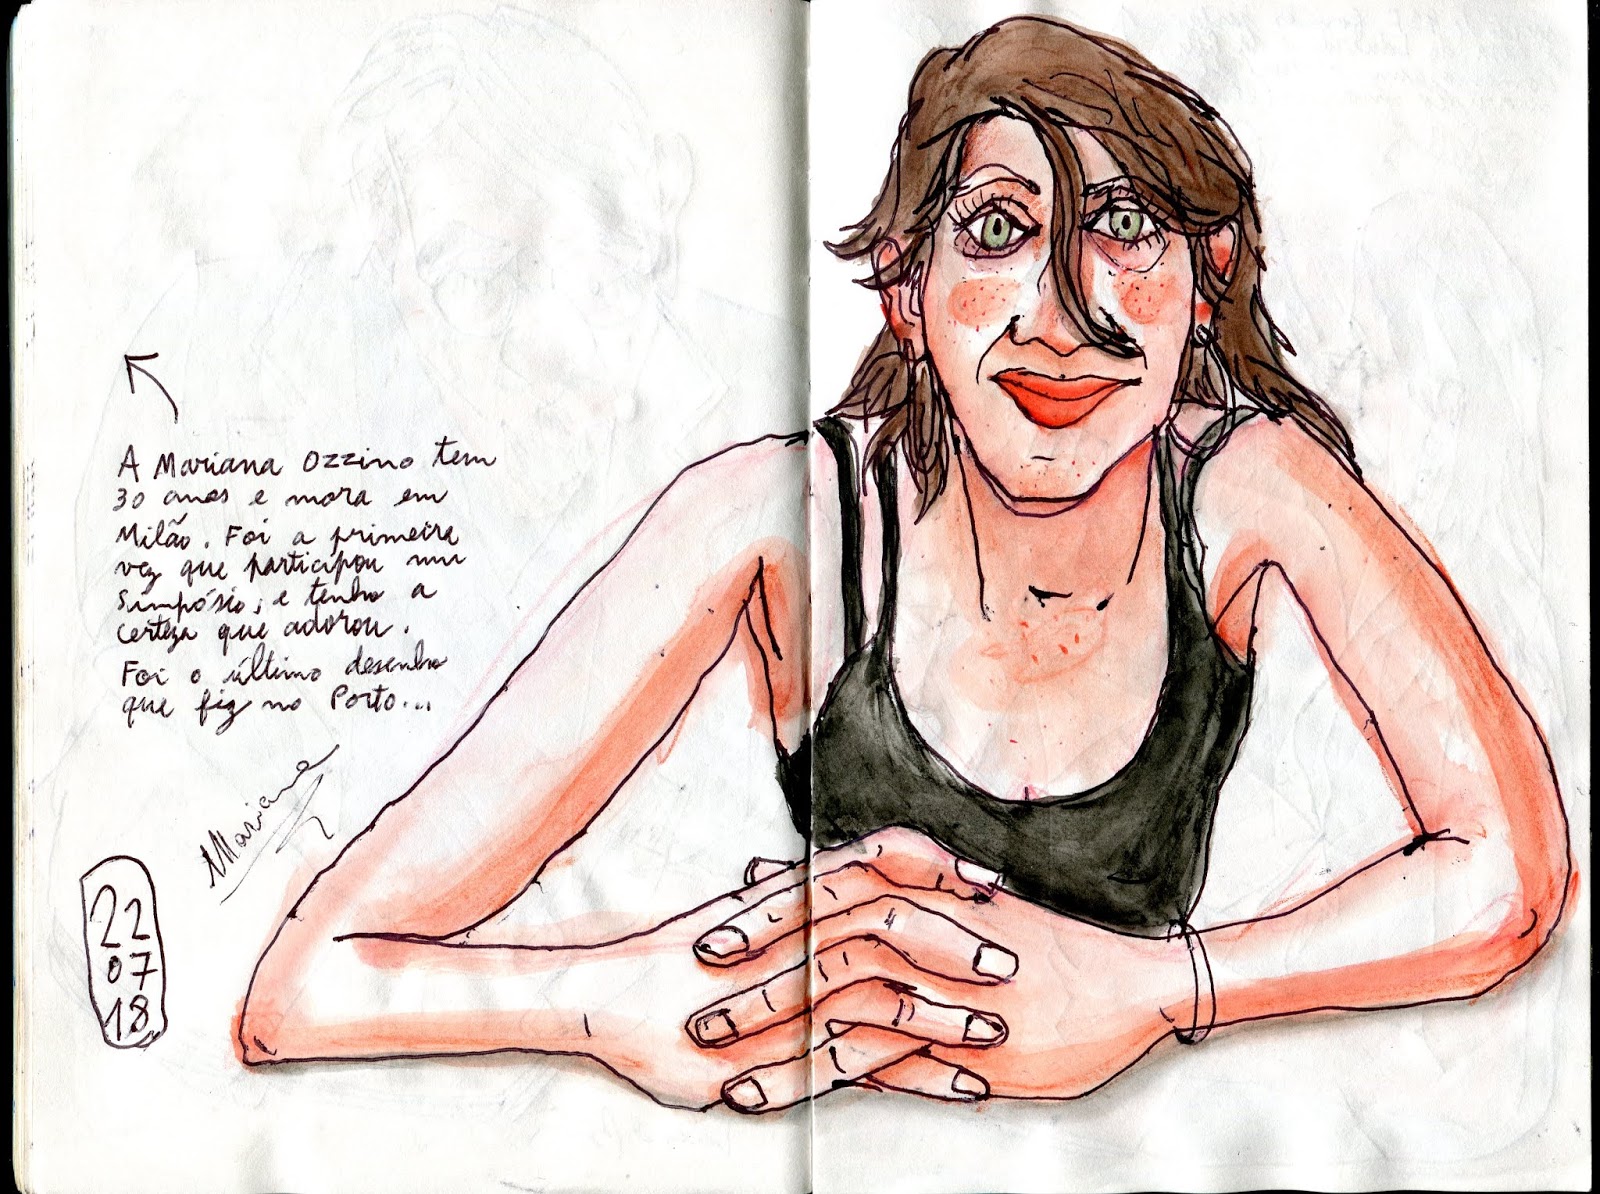 A Mariana Ozzino tem
30 anos e mora em
Milão. Foi a primeira
vez que participou num
Simpósio, e tenho a
certeza que adorou.
Foi o último desenho
que fiz no Porto...
Mariana
22
07
18